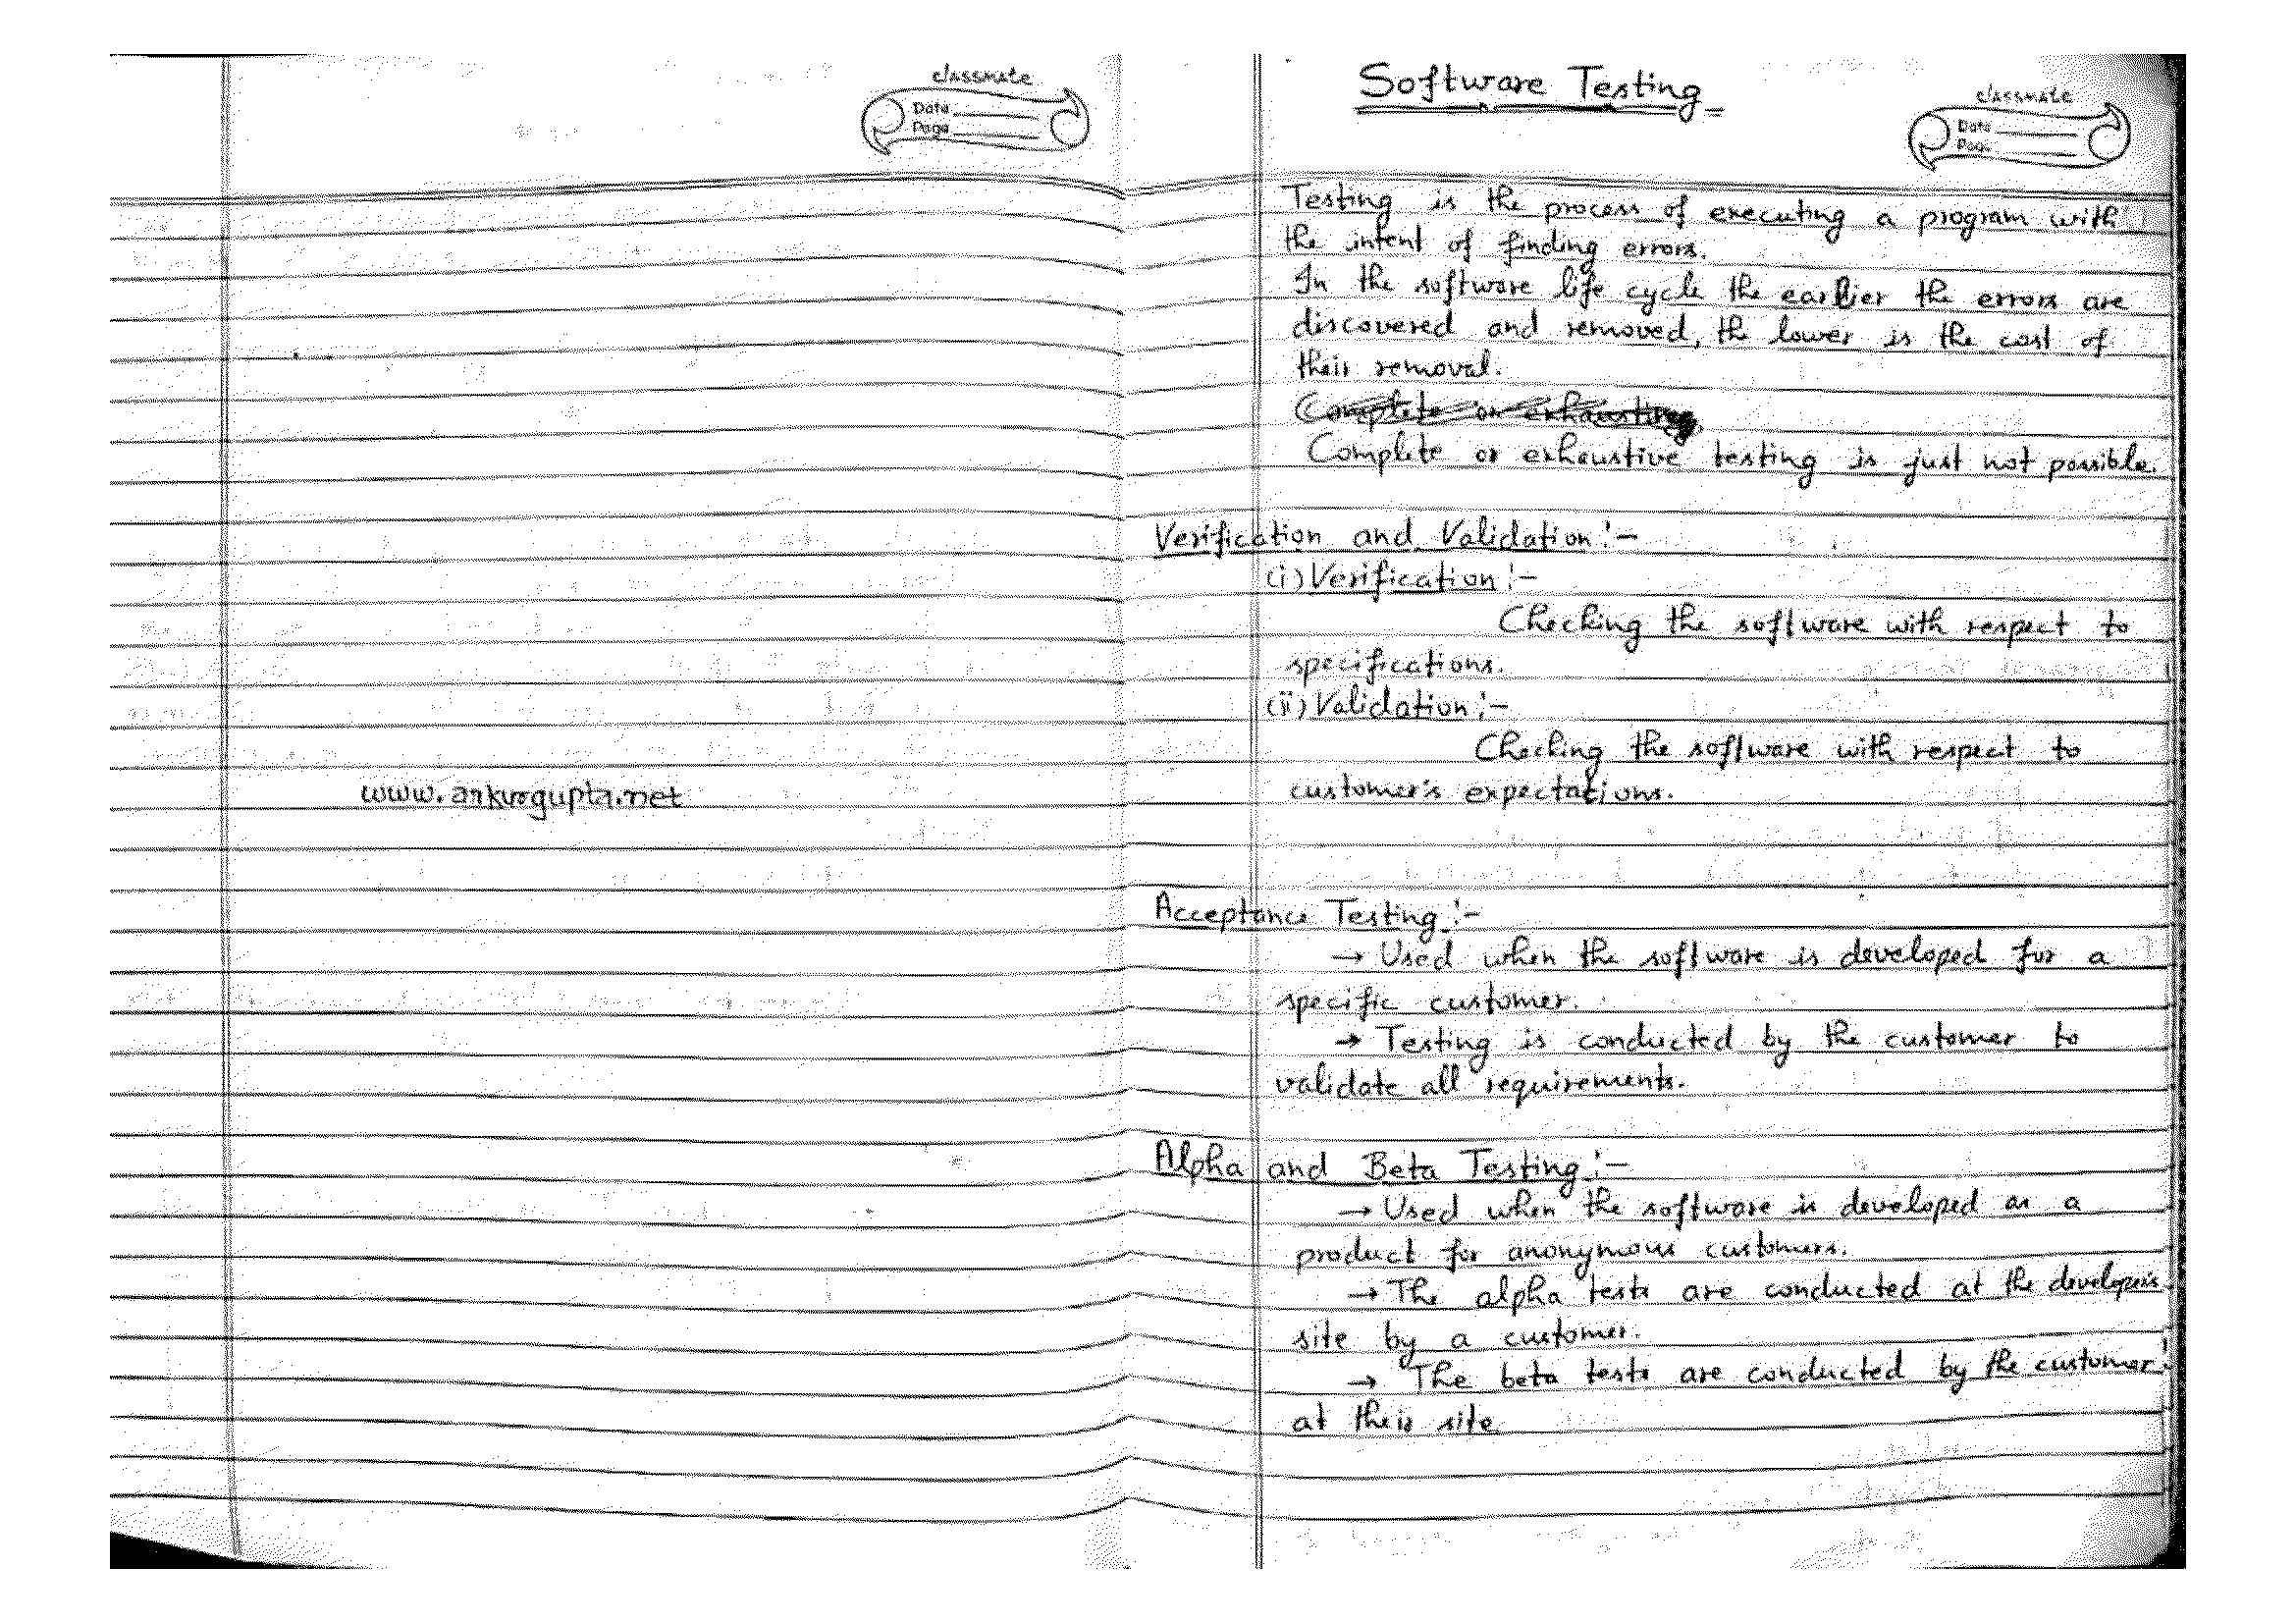 classmate
Date
Page
www.ankurgupta.net
Software Testing
classmate
Date
Page
Testing is the process of executing a program with
the intent of finding errors.
In the software life cycle the earlier the errors are
discovered and removed, the lower is the cost of
their removal.
Complete or exhausting
Complete or exhaustive testing is just not possible.
Verification and Validation :-
(i) Verification :-
Checking the software with respect to
specifications.
(ii) Validation :-
Checking the software with respect to
customer's expectations.
Acceptance Testing :-
→ Used when the software is developed for a
specific customer.
→ Testing is conducted by the customer to
validate all requirements.
Alpha and Beta Testing :-
→ Used when the software is developed as a
product for anonymous customers.
→ The alpha tests are conducted at the developer's
site by a customer.
→ The beta tests are conducted by the customer
at their site